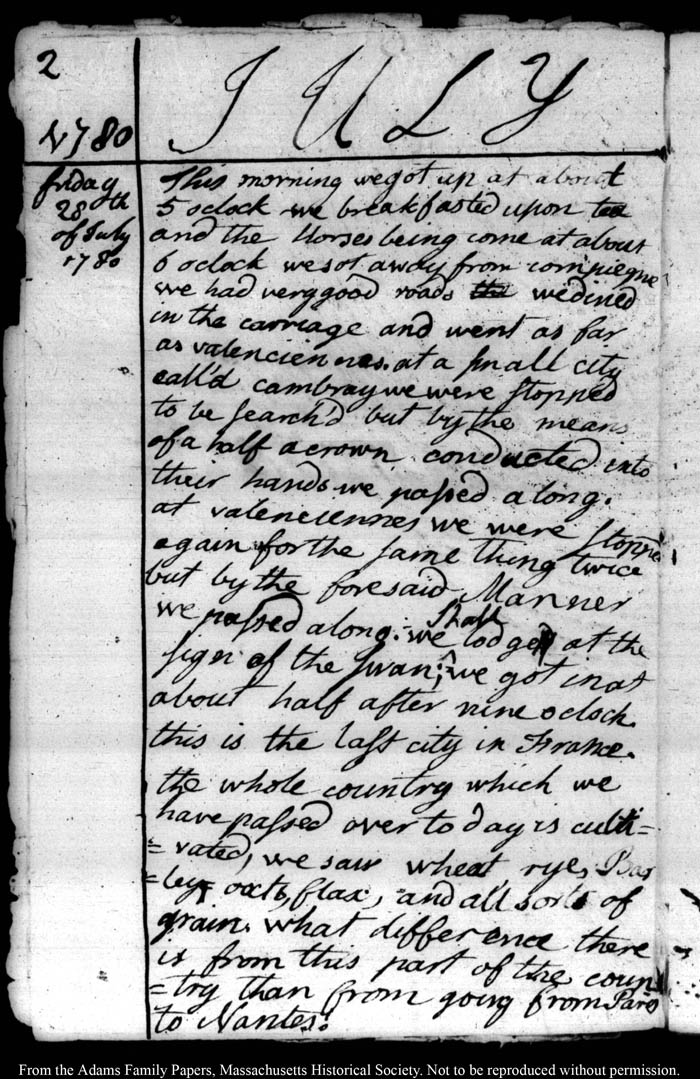 2
JULY
1780
friday
28th
of July
1780
This morning we got up at about
5 oclock we breakfasted upon tea
and the Horses being come at about
6 oclock we sot away from compiegne
we had very good roads the we dined
in the carriage and went as far
as valenciennes. at a small city
call'd cambray we were stopped
to be search'd but by the means
of a half a crown conducted into
their hands we passed along.
at valenciennes we were stopp'd
again for the same thing twice
but by the foresaid Manner
we passed along. we shall lodge at the
sign of the swan; we got in at
about half after nine oclock.
this is the last city in France.
the whole country which we
have passed over to day is culti=
=vated, we saw wheat rye, Bar
=ley, oats, flax, and all sorts of
grain. what difference there
is from this part of the coun
=try than from going from Paris
to Nantes.
From the Adams Family Papers, Massachusetts Historical Society. Not to be reproduced without permission.